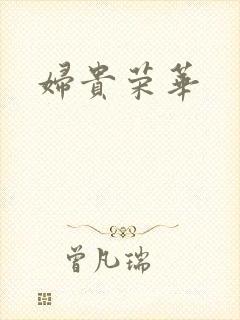 婦貴荣華
曾凡瑞